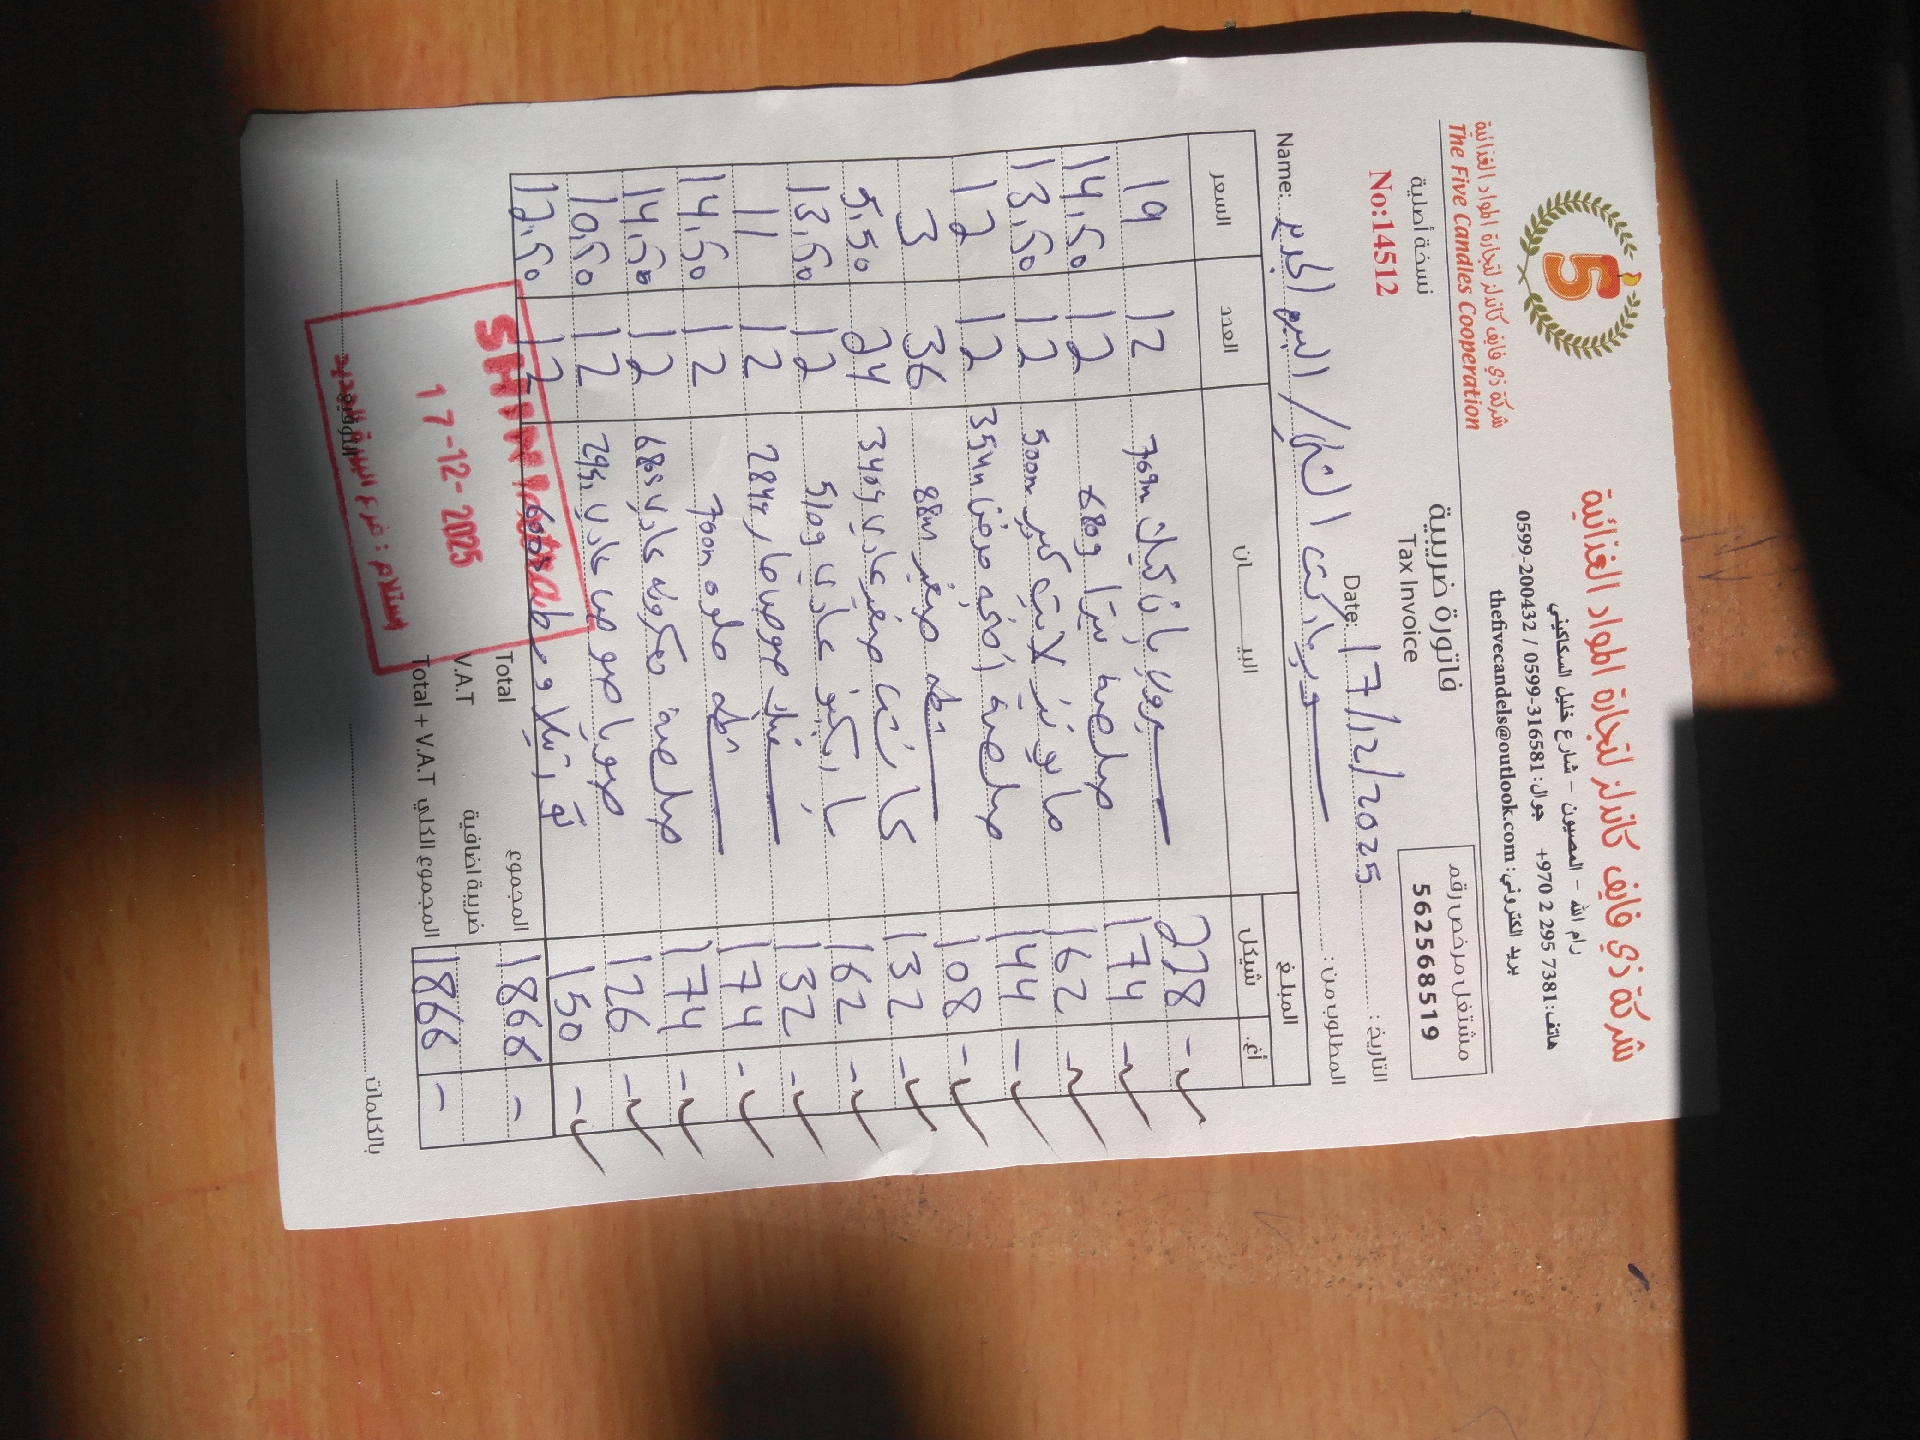 شركة ذي فايف كاندلز لتجارة المواد الغذائية
رام الله - المصيون - شارع خليل السكاكيني
هاتف: +970 2 295 7381 جوال: 0599-316581 / 0599-200432
بريد الكتروني: thefivecandels@outlook.com
5
شركة ذي فايف كاندلز لتجارة المواد الغذائية
The Five Candles Cooperation
مشتغل مرخص رقم
562568519
فاتورة ضريبية
Tax Invoice
نسخة أصلية
No:14512
التاريخ: 17/12/2025 Date:
المطلوب من: سوبر ماركت الشني / البيرة الجديد Name:
المبلغ البيــــــــان العدد السعر
شيكل أغ.
228 - بان كيك 769m 12 19
174 - صلصة بيتزا 680g 12 14,50
162 - مايونيز لايت كبير 500m 12 13,50
144 - صلصة 354m 12 12
108 - شطة صغير 88m 36 3
132 - كاتشب صغير عادي 340g 24 5,50
162 - باربكيو عادي 510g 12 13,50
132 - 284g 12 11
174 - شطة 700m 12 14,50
174 - صلصة معكرونة عادي 680g 12 14,50
126 - صويا صوص عادي 295m 12 10,50
150 - تورتيلا وسط 600g 12 12,50
المجموع Total 1866 -
ضريبة اضافية V.A.T
المجموع الكلي Total + V.A.T 1866 -
بالكلمات
التوقيع
17-12-2025
استلام: فرع البيرة الجديد